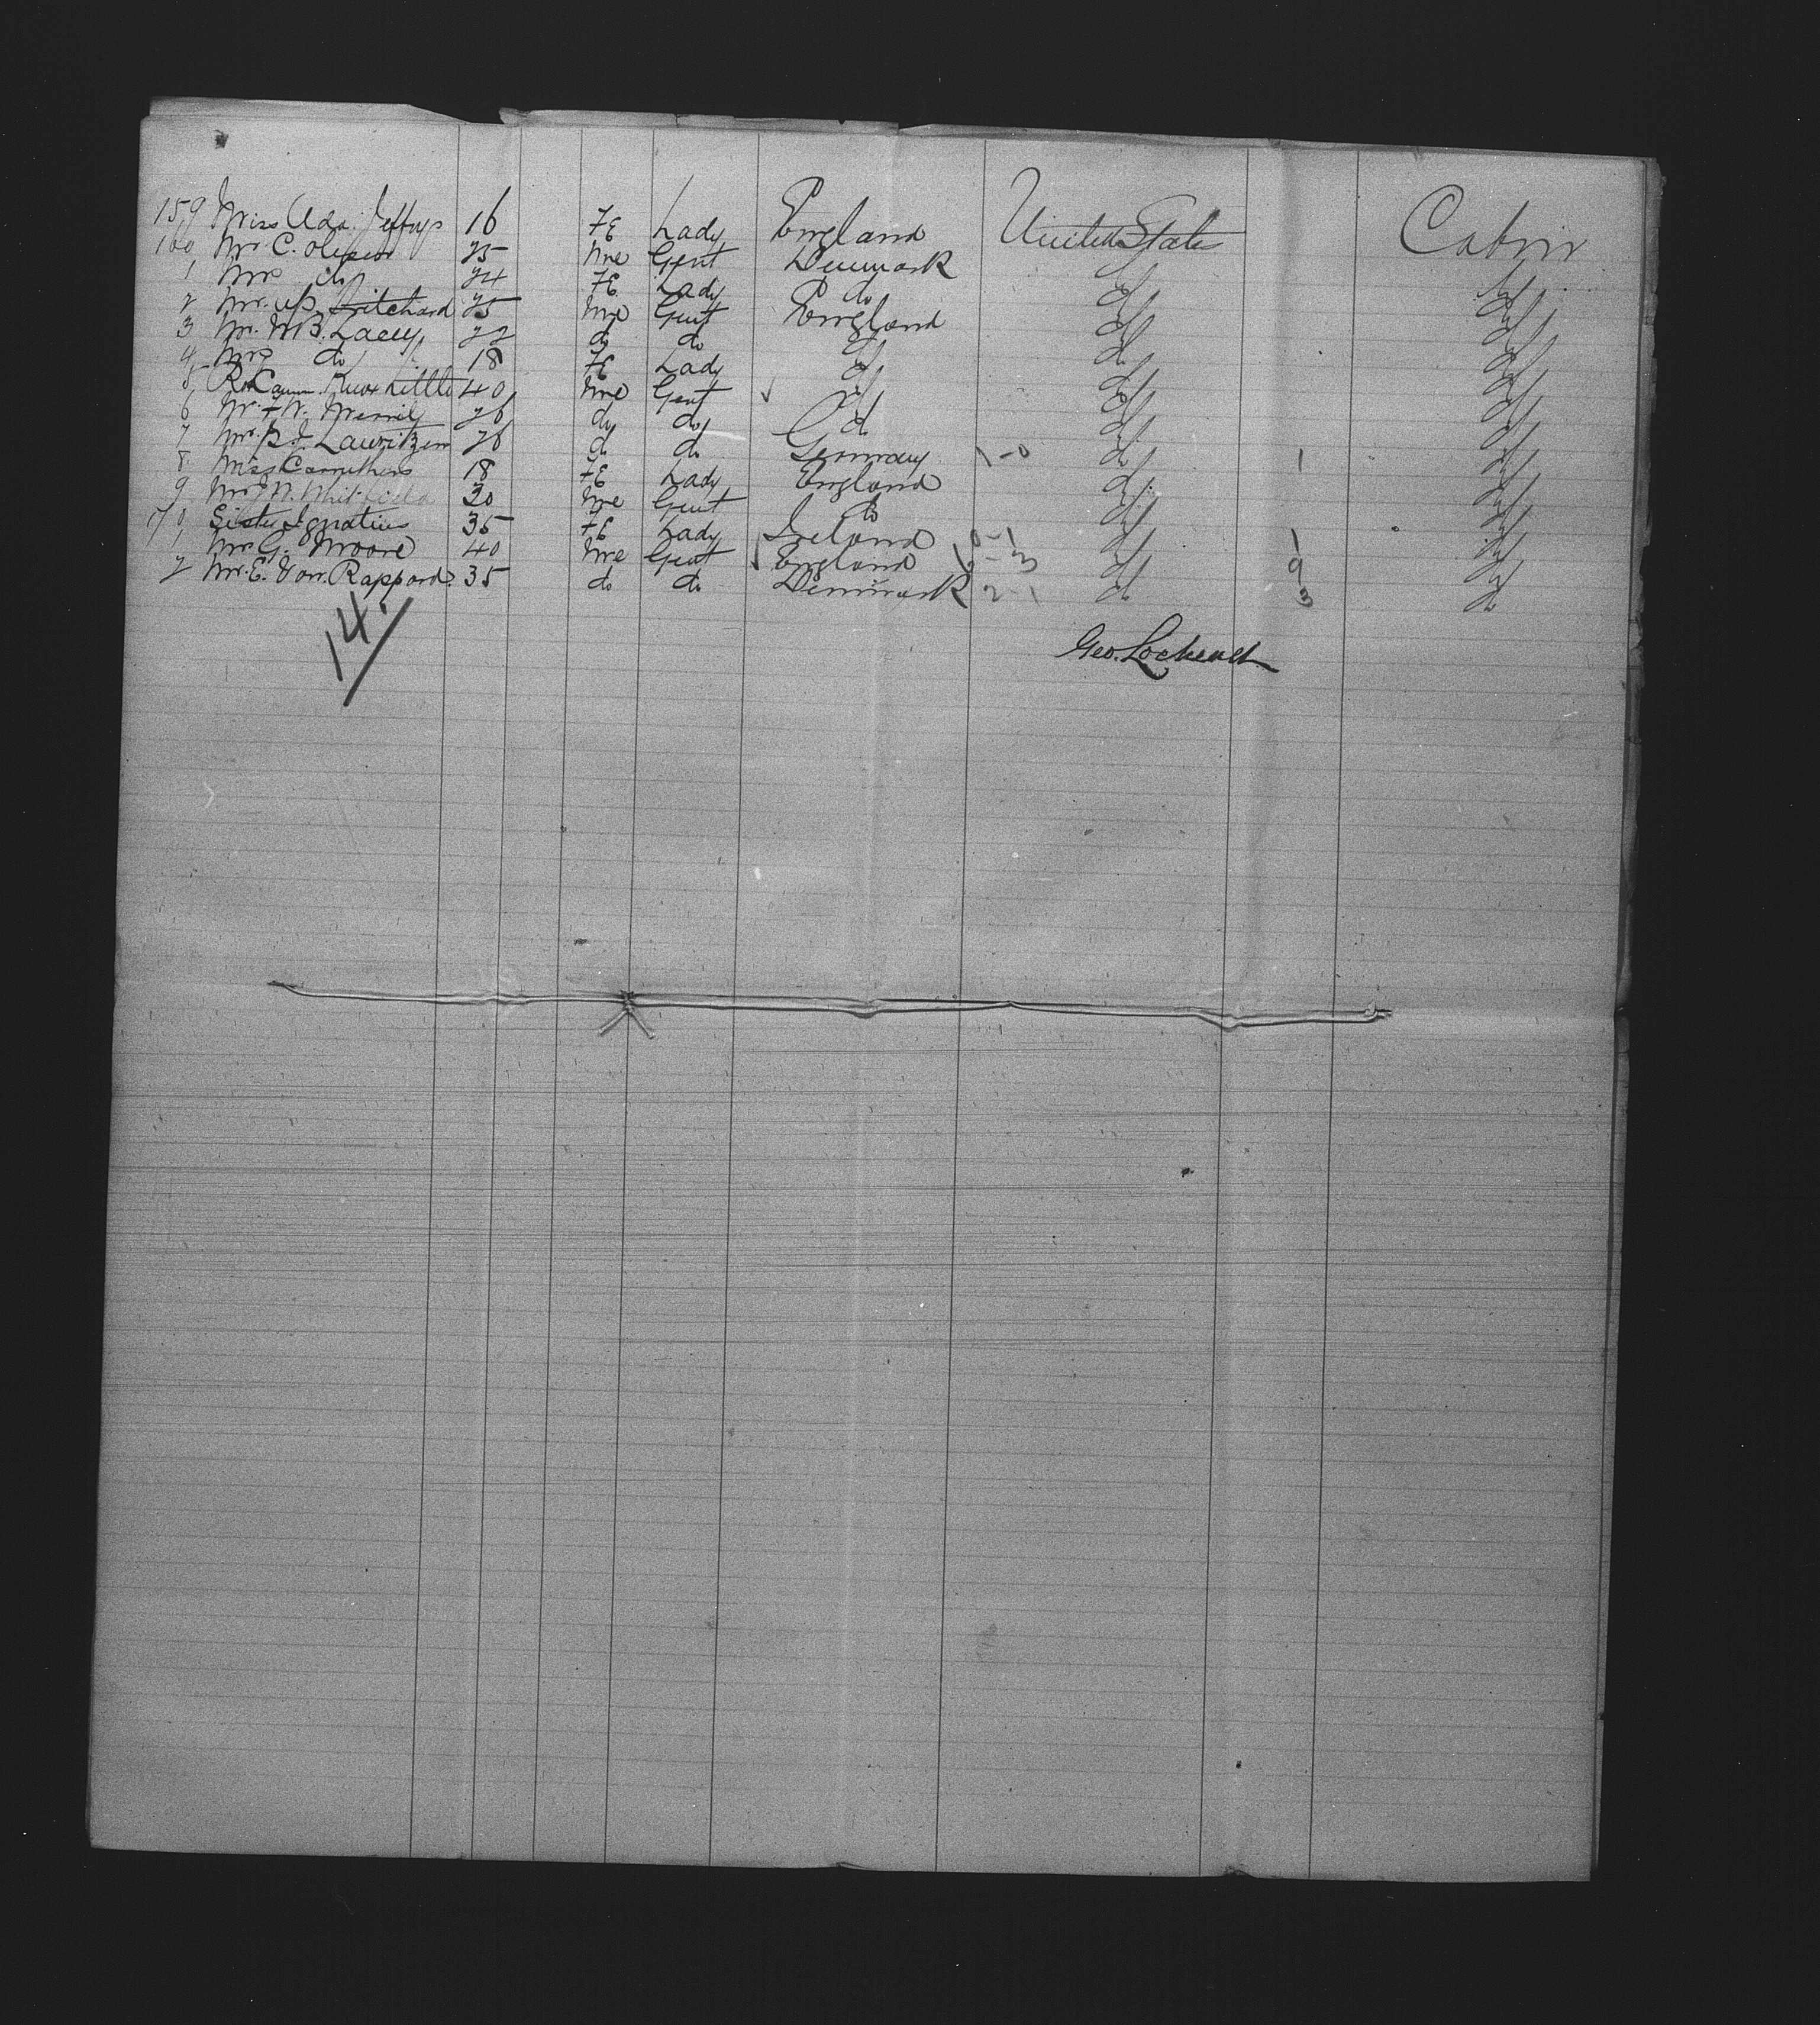 159 Miss Ada Jeffrys 16 FE Lady England United States Cabin
160 Mr. C. Olesen 25 Me Gent Denmark do do
1 Mrs do 24 FE Lady do do do
2 Mr. Pritchard 25 Me Gent England do do
3 Mr. W.B. Lacey 22 do do do do do
4 Mrs do 18 FE Lady do do do
5 Rev Knox Little 40 Me Gent do do do
6 Mr. W. Merrill 26 do do do do do
7 Mr. P.J. Lauritzen 26 do do Germany 1-0 do 1 do
8 Miss Carruthers 18 FE Lady England do do
9 Mr J W. Whitfield 30 Me Gent do do do
170 Sister Ignatius 35 FE Lady Ireland 0-1 do 1 do
1 Mr G. Moore 40 Me Gent England 6-3 do 9 do
2 Mr. E. Von Rappard 35 do do Denmark 2-1 do 3 do
14
Geo. Lochead